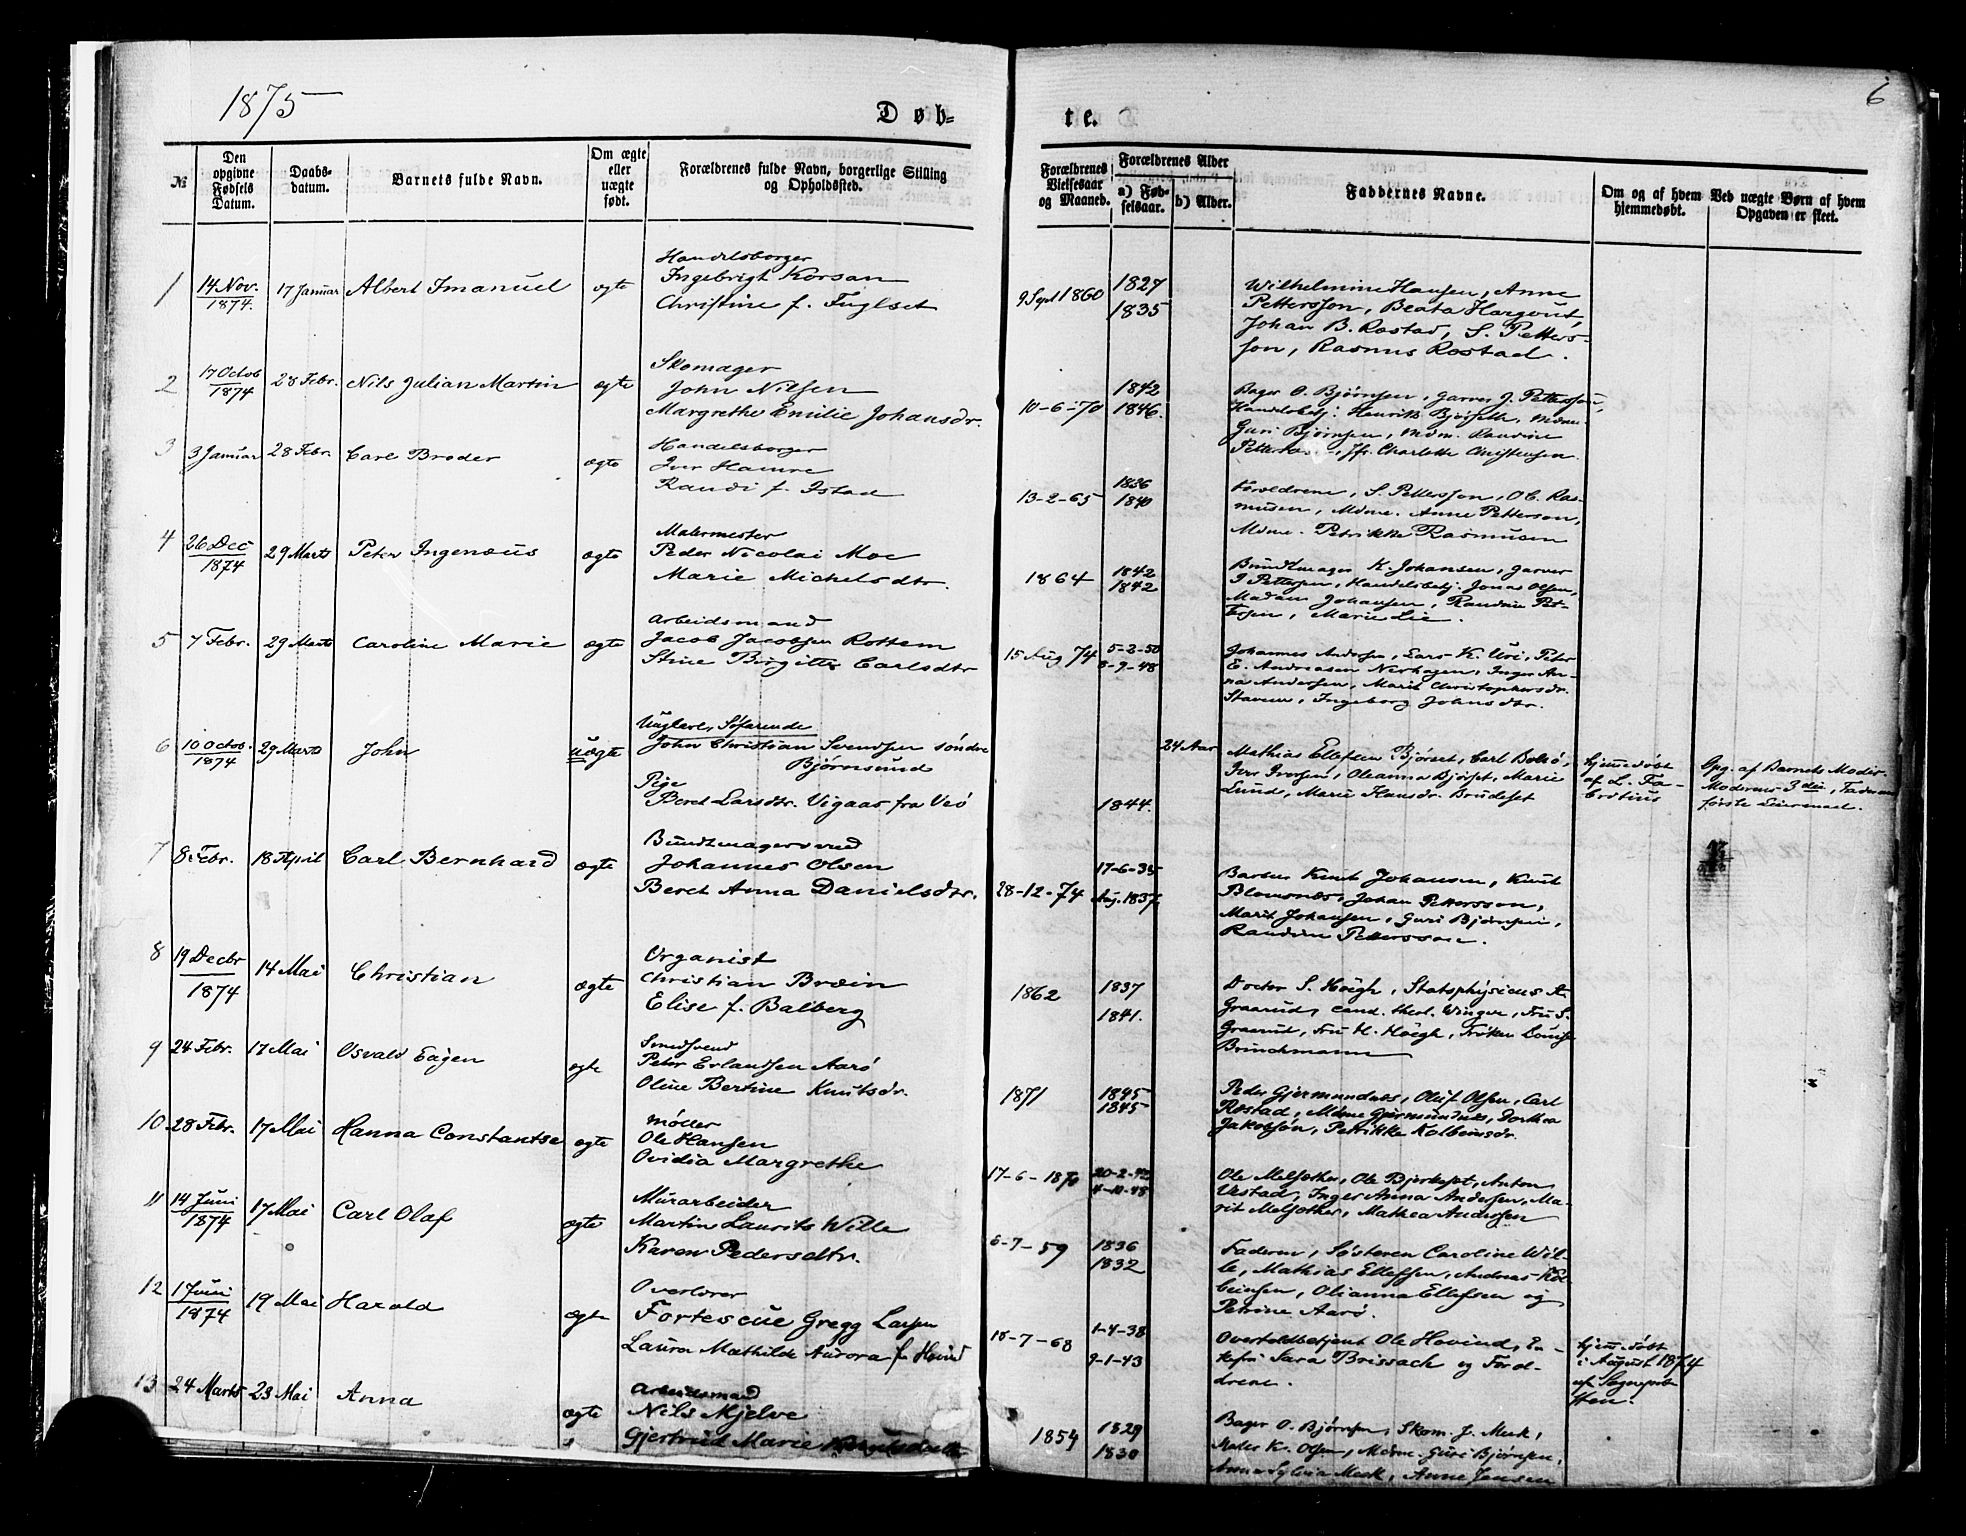 1875
Døb-
te.
6
№
Den opgivne Fødsels Datum.
Daabs-datum.
Barnets fulde Navn.
Om ægte eller uægte født.
Forældrenes fulde Navn, borgerlige Stilling og Opholdssted.
Forældrenes Vielsesaar og Maaned.
Forældrenes Alder
a) Fød-selsaar.
b) Alder.
Faddernes Navne.
Om og af hvem hjemmedøbt.
Ved uægte Børn af hvem Opgaven er skeet.
1 14 Nov. 1874. 17 Januar Albert Imanuel ægte
Handelsborger
Ingebrigt Korsan
Christine f. Fuglset
9 Sept 1860 1827 1835
Wilhelmine Hansen, Anne
Pettersson, Beata Hargout,
Johan B. Rostad, S. Petters-
son, Rasmus Rostad.
2 17 Octob 1874 28 Febr. Nils Julian Martin ægte
Skomager
John Nilsen
Margrethe Emilie Johansdr.
10-6-70 1842 1846.
Bager O. Bjørnsen, Garver J. Pettersson,
Handelsbetj. Henrik Bjørseth, Mdme
Guri Bjørnsen, Mdm. Randine
Jfr. Charlotte Christensen.
3 3 Januar 28 Febr. Carl Broder ægte
Handelsborger
Iver Hamre
Randi f. Istad
13-2-65 1836 1840
Forældrene, S. Pettersson, O C. Ras-
musen, Mdme. Anne Petterson,
Mdme. Petrikke Rasmusen
4 26 Dec 1874 29 Marts Peter Ingenæus ægte
Malermester
Peder Nicolai Moe
Marie Michelsdtr.
1864 1842 1842
Bundtmager K. Johansen, Garver
J Pettersen, Handelsbetj. Jonas Olsen,
Madam Johansen, Randine Pet-
tersen, Marie Lie.
5 7 Febr. 29 Marts Caroline Marie ægte
Arbeidsmand
Jacob Jacobsen Rottem
Stine Birgitte Carlsdtr
15 Aug 74 5-2-50 8-9-48
Johannes Andersen, Lars K. Uri, Peter
E. Andreasen Nerhagen, Inger An-
na Andersen, Marit Christophersdr.
Ingeborg Johnsdtr.
6 10 Octob. 1874 29 Marts John uægte
Ungkarl, Søfarende
John Christian Svendsen søndre
Bjørnsund
Pige
Beret Larsdtr. Vigaas fra Veø
24 Aar
1844.
Mathias Ellefsen Bjørset, Carl Bolsø,
Iver Iversen, Oleanna Bjørset, Marie
Lund, Marie Hansdr. Brudeset
hjem.døbt
af L. Fa-
britius
Opg. af Barnets Moder.
Moderens 3die, Faderens
første Leiermaal.
7 8 Febr. 18 April Carl Bernhard ægte
Bundtmagersvend
Johannes Olsen
Beret Anna Danielsdtr.
28-12-74 17-6-35 Aug. 1837.
Barber Knut Johansen, Knut
Blomsnæs, Johan Pettersson,
Marit Johansen, Guri Bjørnsen,
Randine Pettersson.
8 19 Decbr 1874 14 Mai Christian ægte
Organist
Christian Bræin
Elise f. Balberg
1862 1837 1841.
Doctor S. Høigh, Statsphysicus A.
Graarud, cand. theol. Winger, Fru S.
Graarud, Fru H. Høigh, Frøken Louise
Brinchmann
9 24 Febr. 17 Mai Osvald Eugen ægte
Smedsvend
Peter Erlandsen Aarø
Oline Bertine Knutsdr.
1871 1845 1845
Peder Gjermundnes, Oluf Olsen, Carl
Rostad, Mdme Gjermundnes, Dorthea
Jakobson, Petrikke Kolbeinsdr.
10 28 Febr. 17 Mai Hanna Constantse ægte
Møller
Ole Hansen
Ovidia Margrethe
17-6-1870 20-2-42 4-10-48
Ole Melsæther, Ole Bjerkeset, Anton
Vestad, Inger Anna Andersen, Ma-
rit Melsæther, Mathea Andersen
11 14 Juni 1874 17 Mai Carl Olaf ægte
Murarbeider
Martin Laurits Wille
Karen Pedersdtr.
6-7-59 1836 1832
Faderen, Søsteren Caroline Wil-
le, Mathias Ellefsen, Andreas Kol-
beinsen, Olianna Ellefsen og
Petrine Aarø.
12 1 Juni 1874 19 Mai Harald ægte
Overlærer
Fortescue Gregg Larsen
Laura Mathilde Aurora f. Hovind
18-7-68 1-4-38 9-1-43
Overtoldbetjent Ole Hovind, En-
kefru Sara Brissach og Foræl-
drene.
hjem.døbt
i August 1874
af Sognepræ-
sten.
13 24 Marts 23 Mai Anna ægte
Arbeidsmand
Nils Mjelve
Gjertrud Marie
1854 1829 1830
Bager O. Bjørnsen, Skom. J. Meek,
K. Olsen, Mdme. Guri Bjørnsen,
Anna Sylvia Meek, Anne Jensen